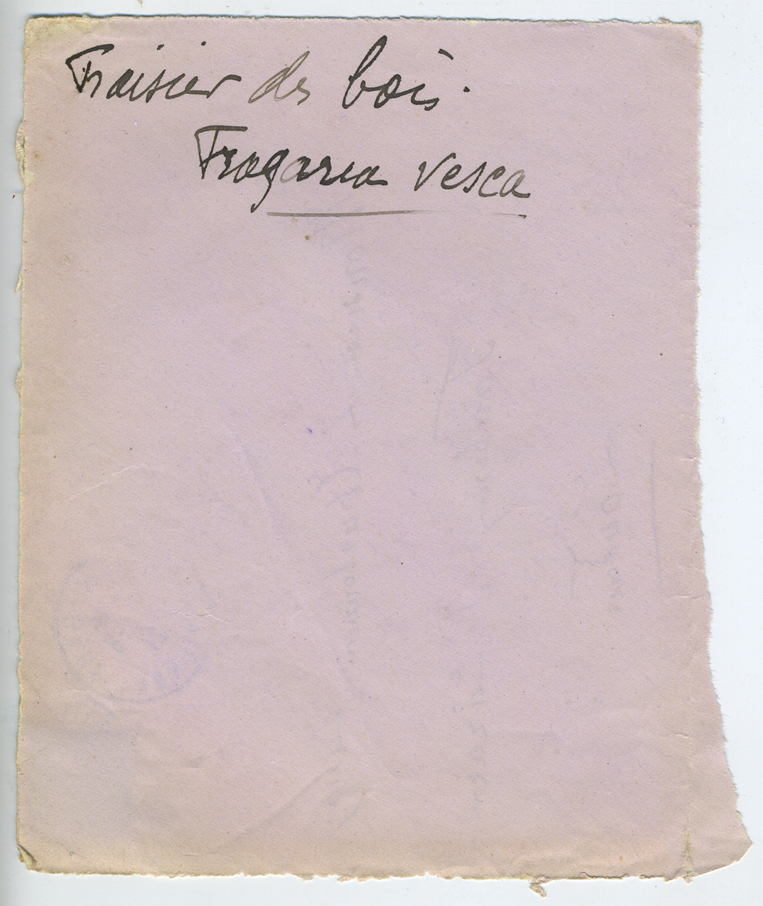 Fraisier des bois.
Fragaria vesca